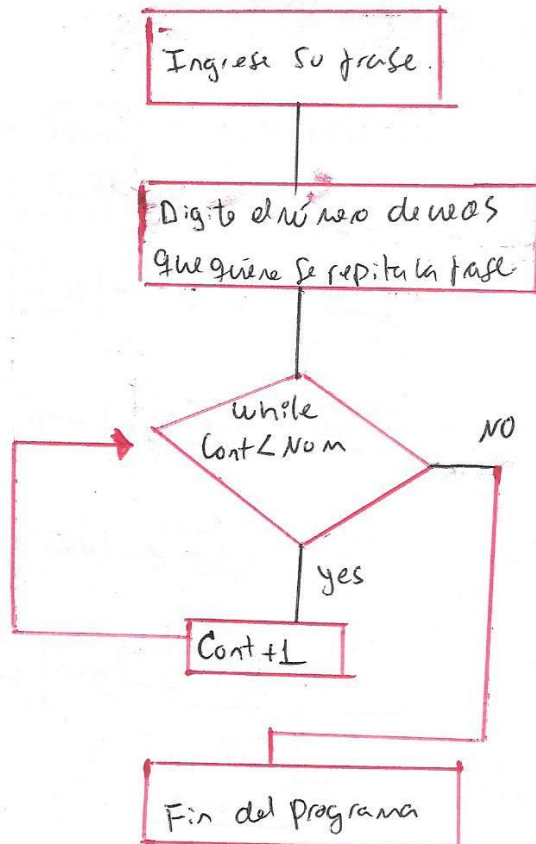 Ingrese su frase.
Digite el número de veces
que quiere se repita la frase
while
Cont < Num
NO
yes
Cont +1
Fin del programa